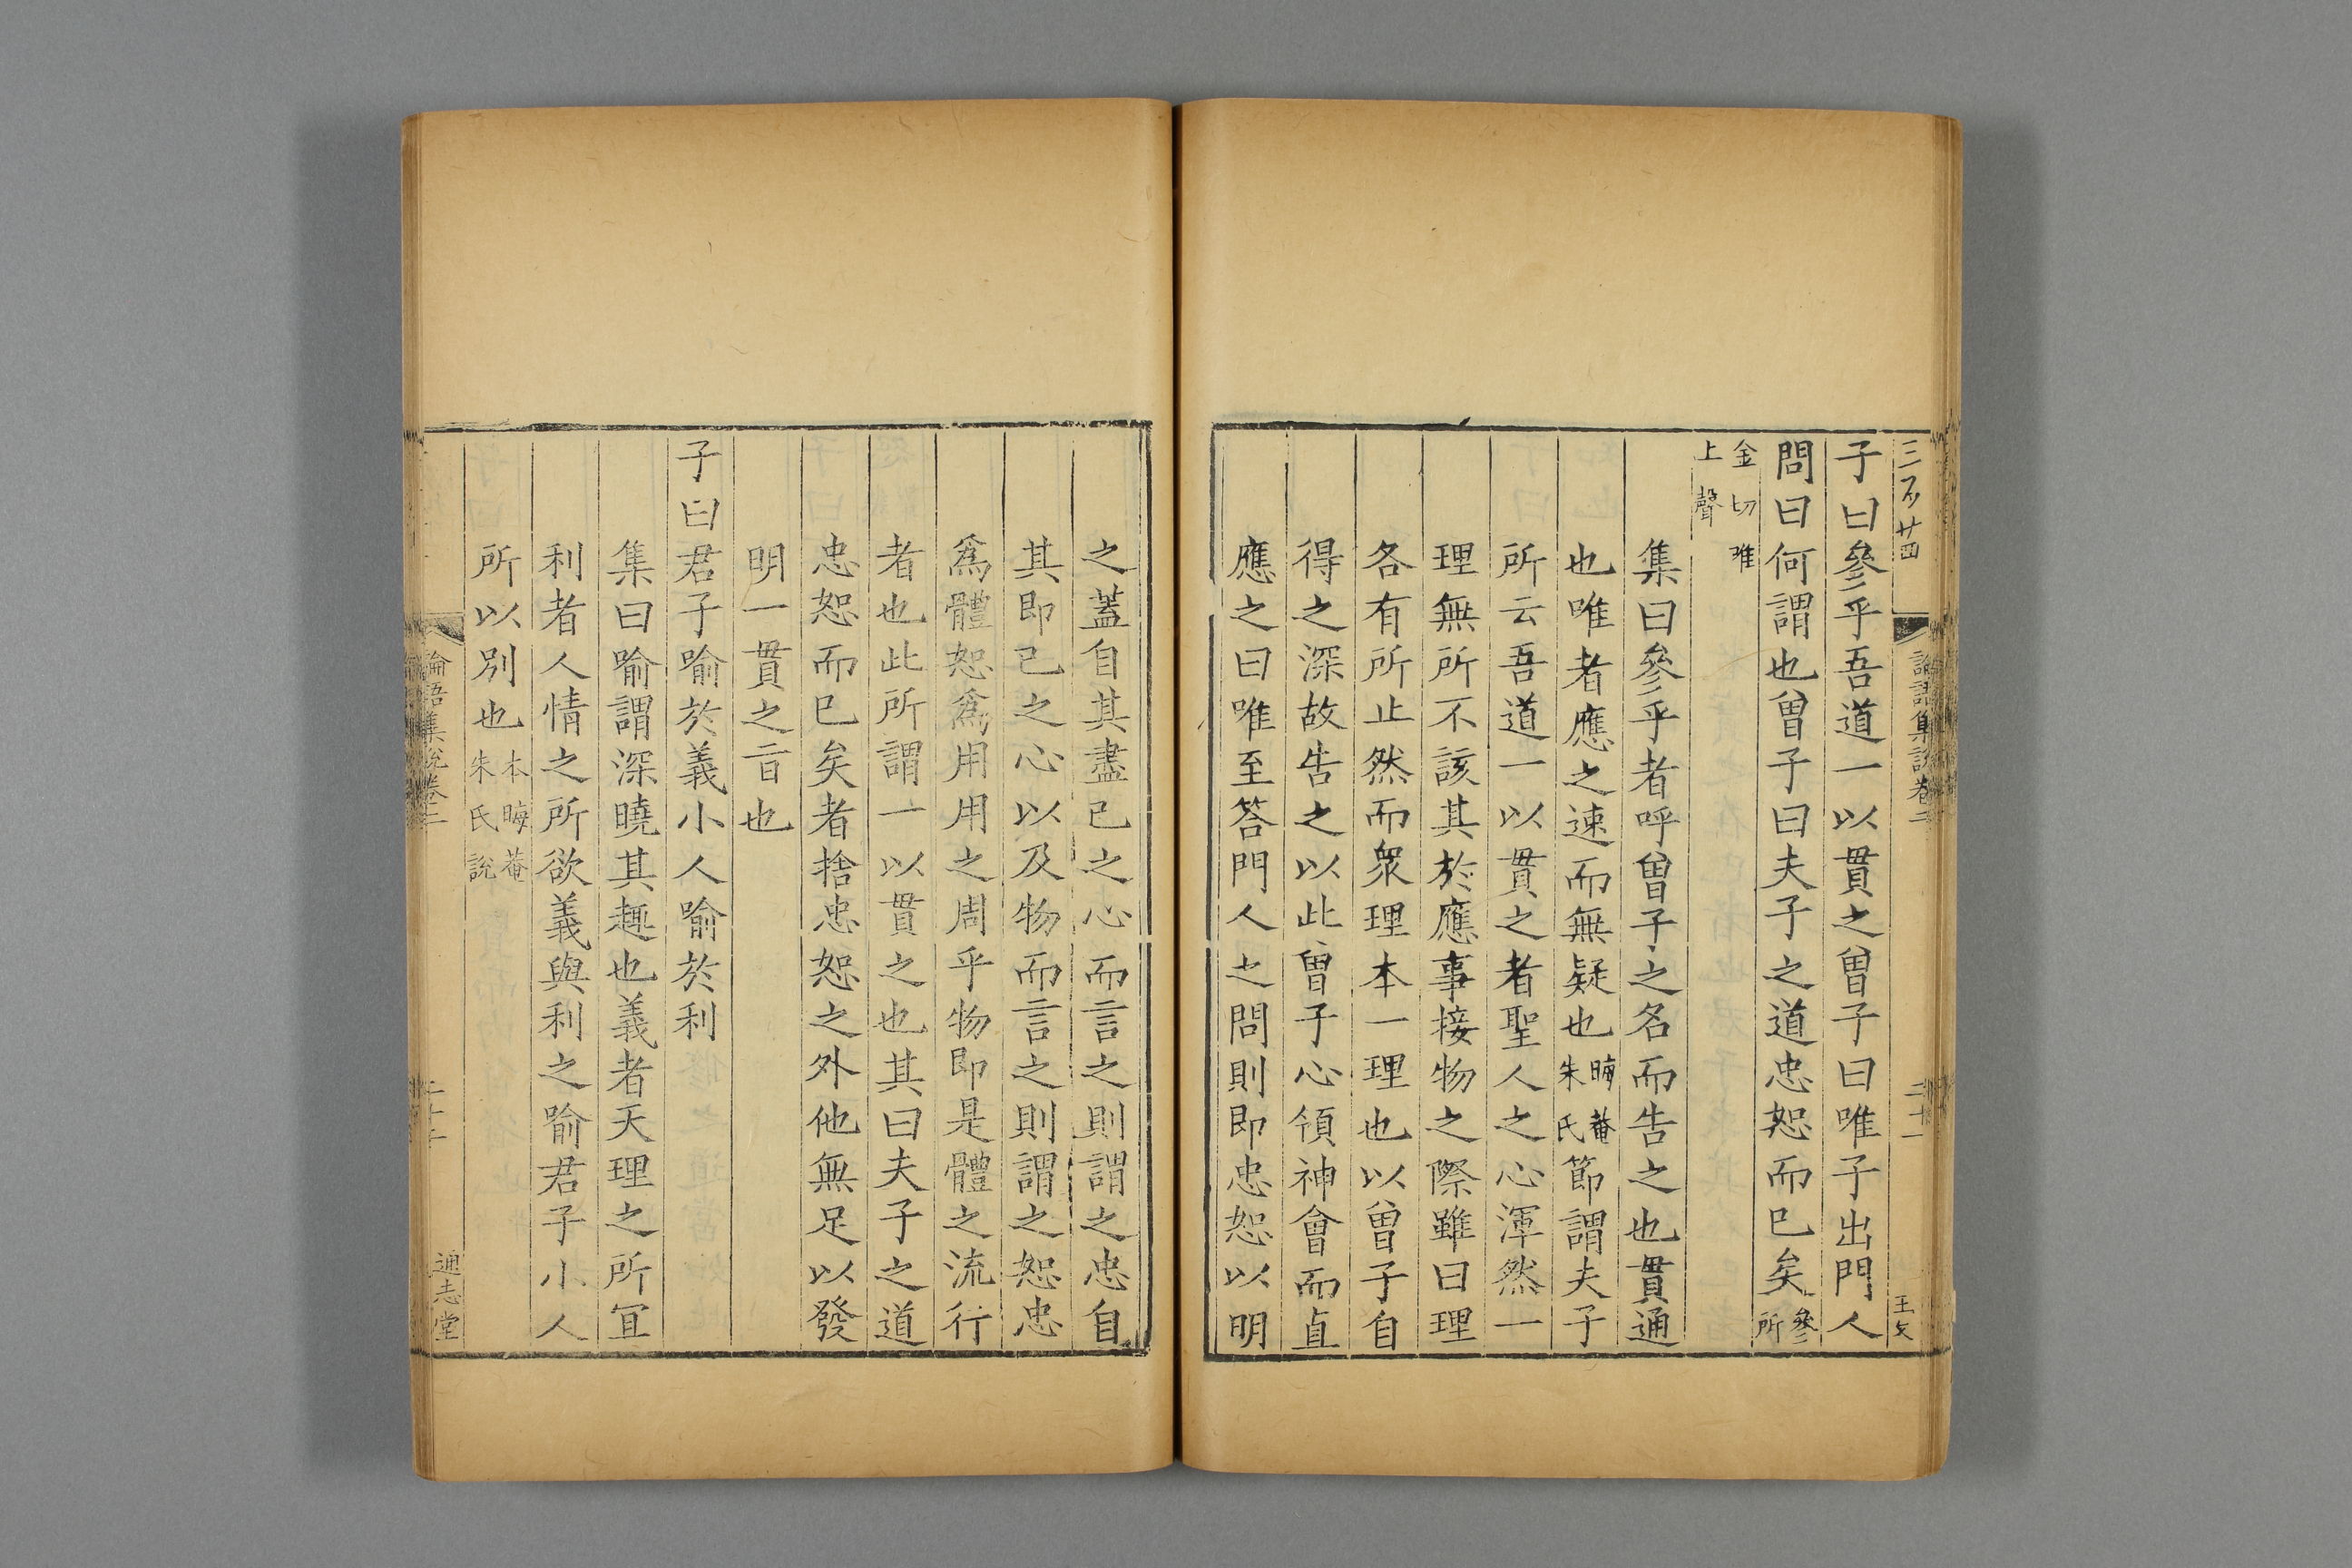 三百廿四
論語集說卷二
二十一
王文
子曰參乎吾道一以貫之曾子曰唯子出門人
問曰何謂也曾子曰夫子之道忠恕而已矣參所
金切唯
上聲
集曰參乎者呼曾子之名而告之也貫通
也唯者應之速而無疑也晦菴朱氏節謂夫子
所云吾道一以貫之者聖人之心渾然一
理無所不該其於應事接物之際雖曰理
各有所止然而衆理本一理也以曾子自
得之深故告之以此曾子心領神會而直
應之曰唯至答門人之問則即忠恕以明
之蓋自其盡已之心而言之則謂之忠自
其即已之心以及物而言之則謂之恕忠
爲體恕爲用用之周乎物即是體之流行
者也此所謂一以貫之也其曰夫子之道
忠恕而已矣者捨忠恕之外他無足以發
明一貫之旨也
子曰君子喻於義小人喻於利
集曰喻謂深曉其趣也義者天理之所宜
利者人情之所欲義與利之喻君子小人
所以別也本晦菴朱氏說
論語集說卷二
通志堂